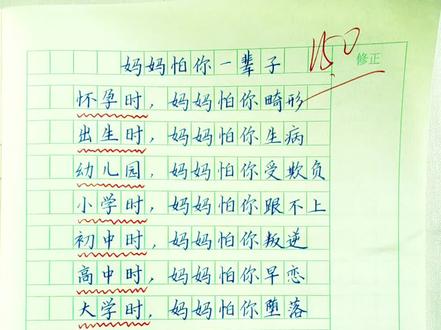 妈妈怕你一辈子
150
修正
怀孕时，妈妈怕你畸形
出生时，妈妈怕你生病
幼儿园，妈妈怕你受欺负
小学时，妈妈怕你跟不上
初中时，妈妈怕你叛逆
高中时，妈妈怕你早恋
大学时，妈妈怕你堕落